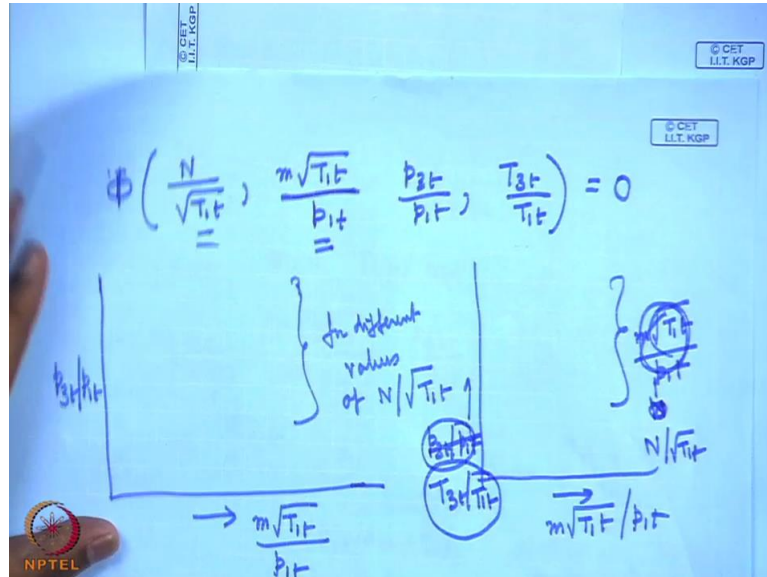 © CET
I.I.T. KGP
© CET
I.I.T. KGP
© CET
I.I.T. KGP
ϕ ( N/√T₁ₜ , m√T₁ₜ/p₁ₜ p₃ₜ/p₁ₜ , T₃ₜ/T₁ₜ ) = 0
p₃ₜ/p₁ₜ
} for different
values
of N/√T₁ₜ
→ m√T₁ₜ/p₁ₜ
p₃ₜ/p₁ₜ
T₃ₜ/T₁ₜ
} m√T₁ₜ/p₁ₜ
N/√T₁ₜ
→ m√T₁ₜ/p₁ₜ
NPTEL